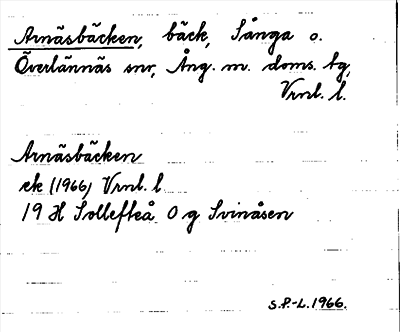 Arnäsbäcken, bäck, Sånga o.
Överlännäs snr, Ång. m. doms. tg,
Vrnl. l.
Arnäsbäcken
ek (1966) Vrnl. l
19 H Sollefteå 0 g Svinåsen
S.P.-L. 1966.